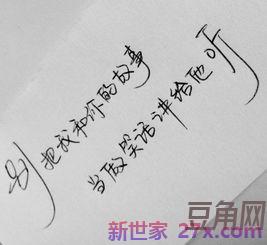 别把我和你的故事
当做笑话讲给他听
豆角网
新世家 27x.com